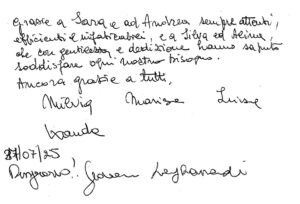 Grazie a Sara e ad Andrea sempre attenti,
efficienti e infaticabili, e a Silva ed Alina,
che con gentilezza e dedizione hanno saputo
soddisfare ogni nostro bisogno.
Ancora grazie a tutti,
Milvia Marisa Luisa
Wanda
27/07/25